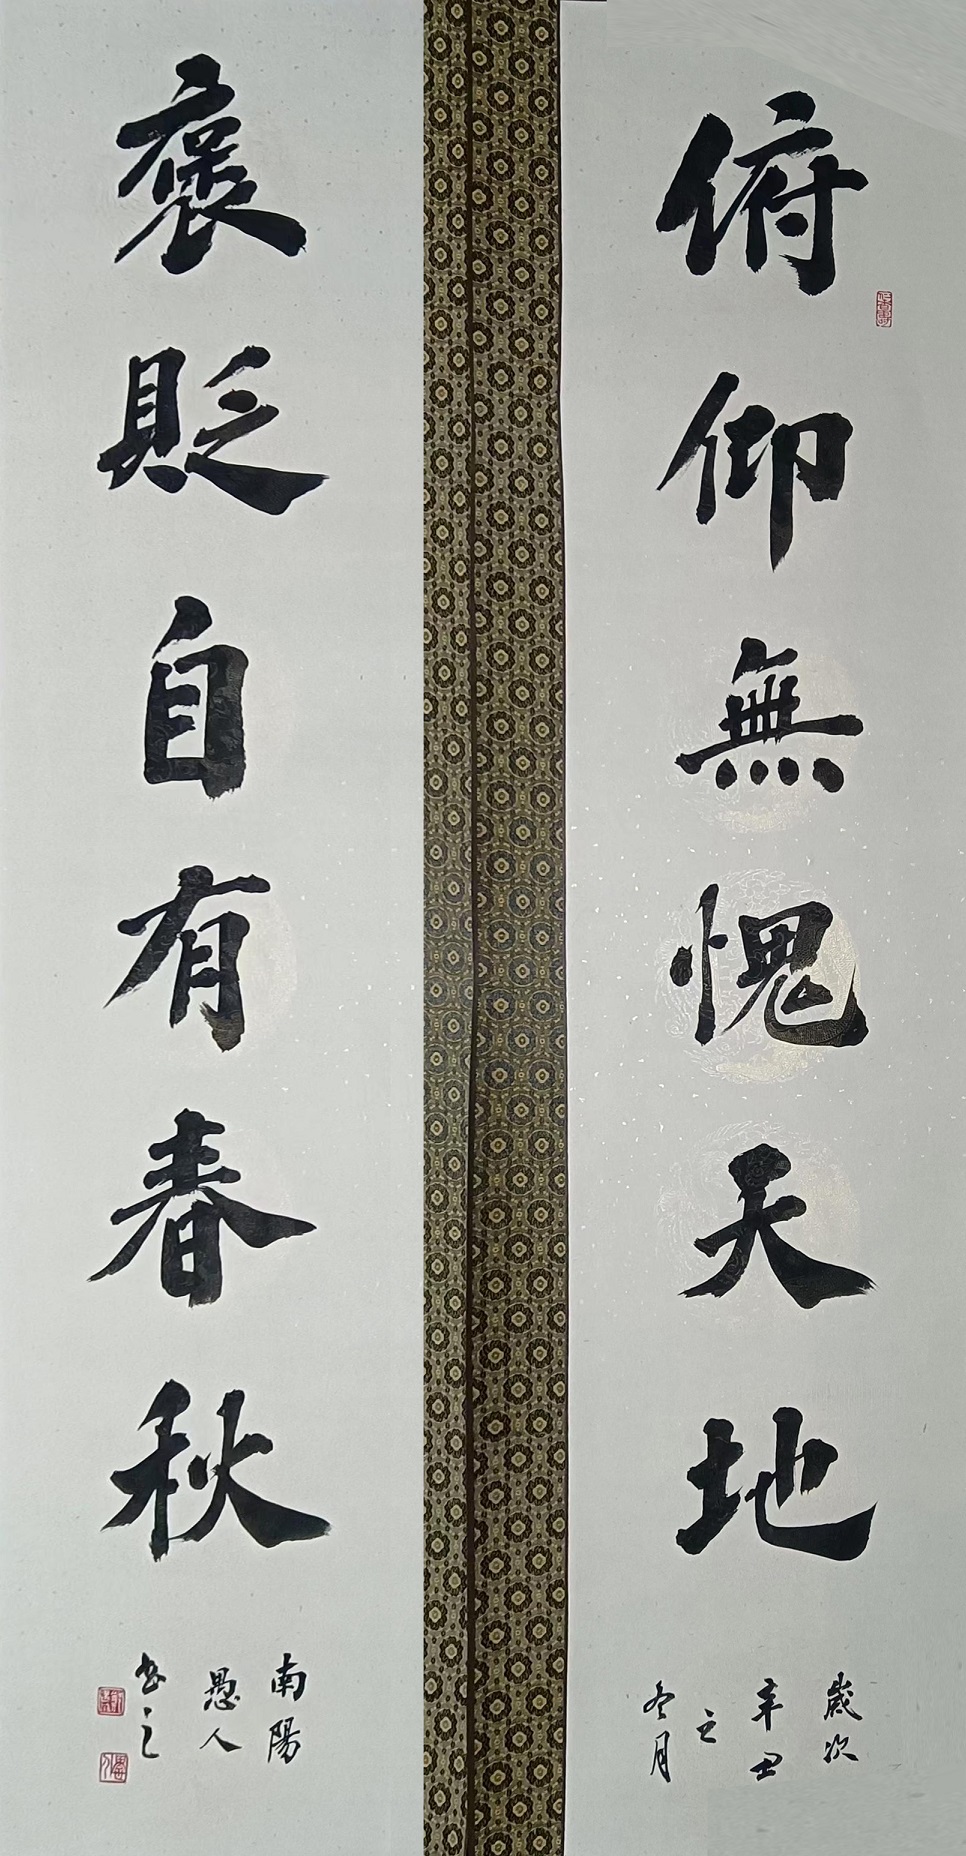 俯仰無愧天地
歲次
辛丑
之
冬月
褒貶自有春秋
南陽
愚人
書之